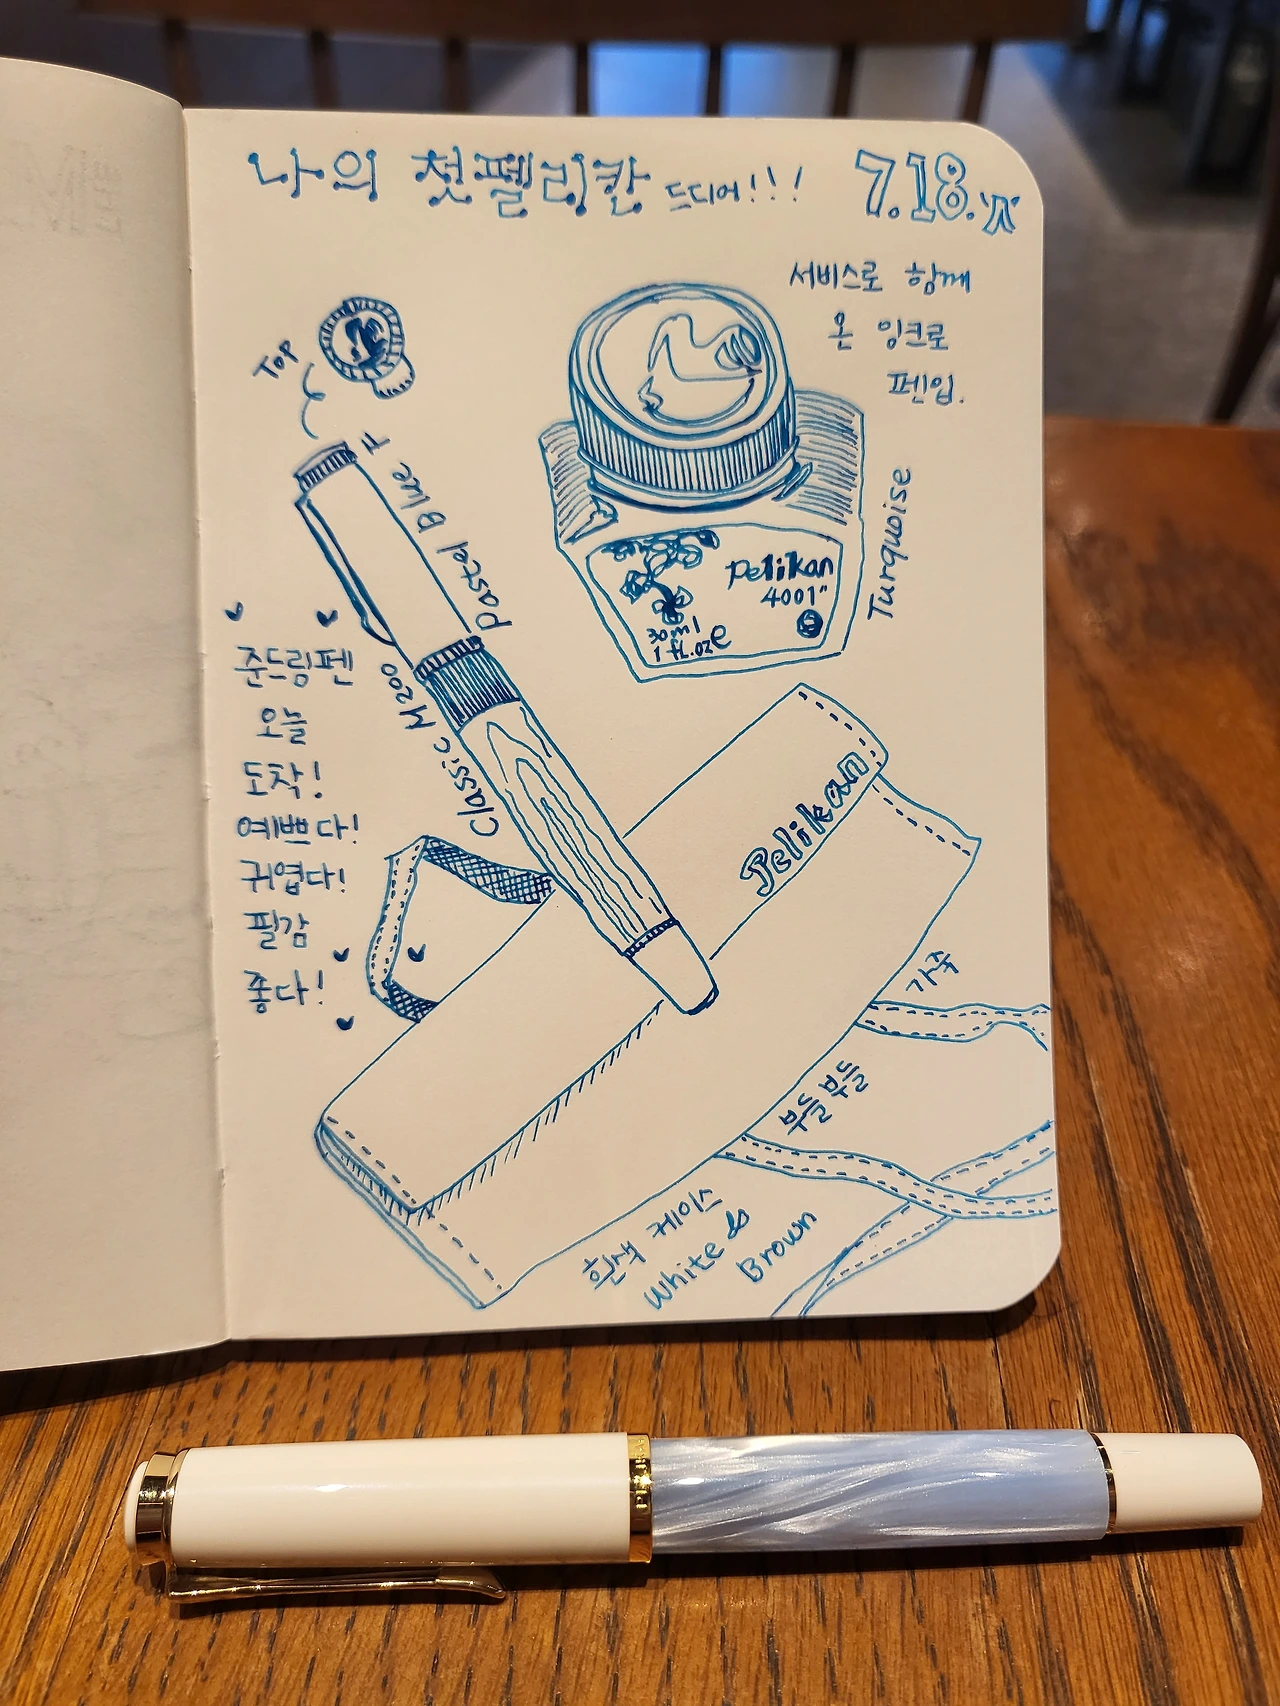 나의 첫 펠리칸 드디어!!! 7.18.
서비스로 함께
온 잉크로
펜입.
TOP
Pastel Blue F
Classic M200
Pelikan
4001"
30ml
1 fl.oz e
Turquoise
오늘
도착!
예쁘다!
귀엽다!
필감
좋다!
Pelikan
가죽
부들부들
흰색 케이스
White &
Brown